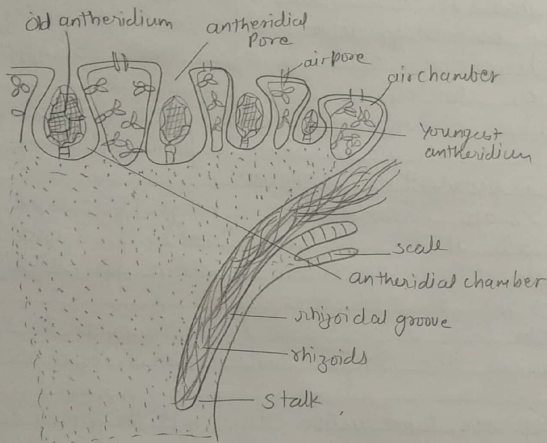 old antheridium
antheridial
Pore
airpore
airchamber
Youngest
antheridium
scale
antheridial chamber
rhizoidal groove
rhizoids
Stalk